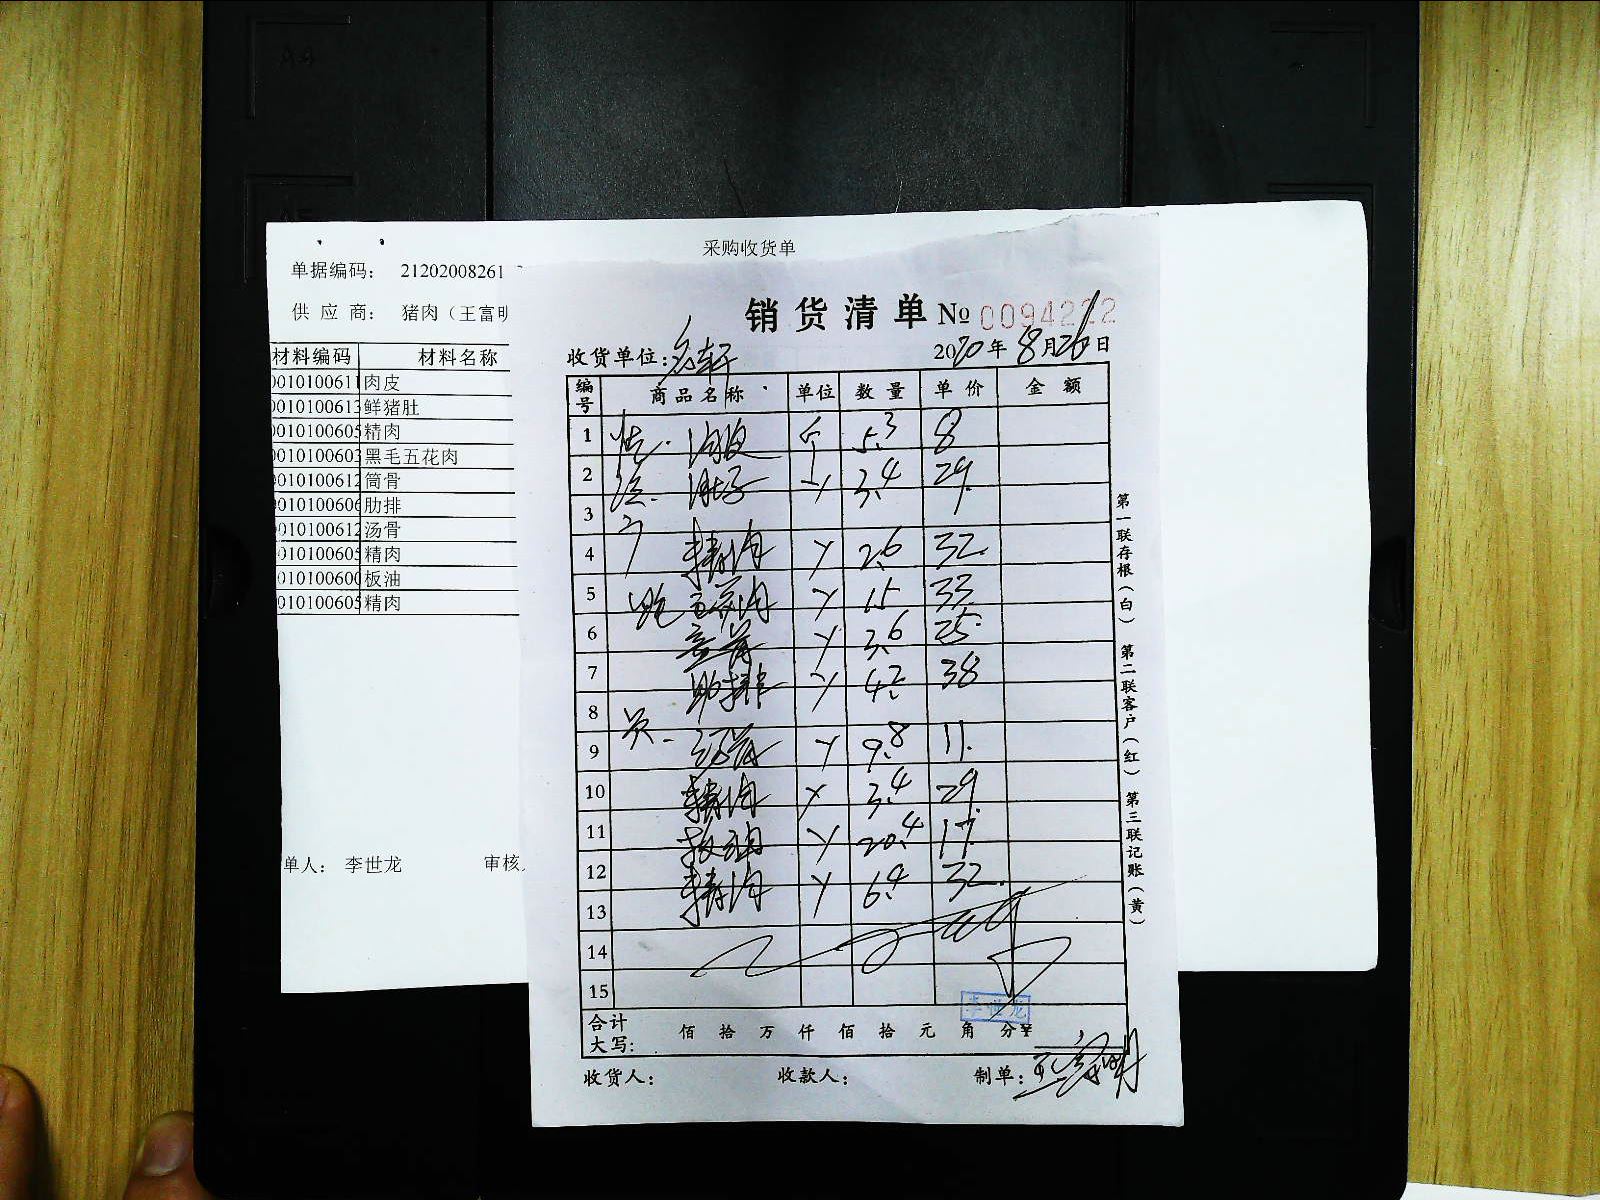 采购收货单
单据编码： 21202008261
供 应 商： 猪肉（王富明
材料编码 材料名称
0010100611 肉皮
0010100613 鲜猪肚
0010100605 精肉
0010100603 黑毛五花肉
0010100612 筒骨
0010100606 肋排
0010100612 汤骨
0010100605 精肉
010100600 板油
010100605 精肉
单人： 李世龙 审核
销货清单 № 0094222
收货单位： 名轩 2020年8月26日
编号 商品名称 单位 数量 单价 金额
1 肉皮 斤 5.3 8
2 肚子 3.4 29
3
4 精肉 2.6 32
5 五花肉 15 33
6 3.6 25
7 肋排 4.2 38
8
9 汤骨 9.8 11
10 精肉 3.4 29
11 板油 20.4 17
12 精肉 6.4 32
13
14
15
合计大写： 佰 拾 万 仟 佰 拾 元 角 分￥
李世龙
收货人： 收款人： 制单：王富明
第一联存根（白） 第二联客户（红） 第三联记账（黄）